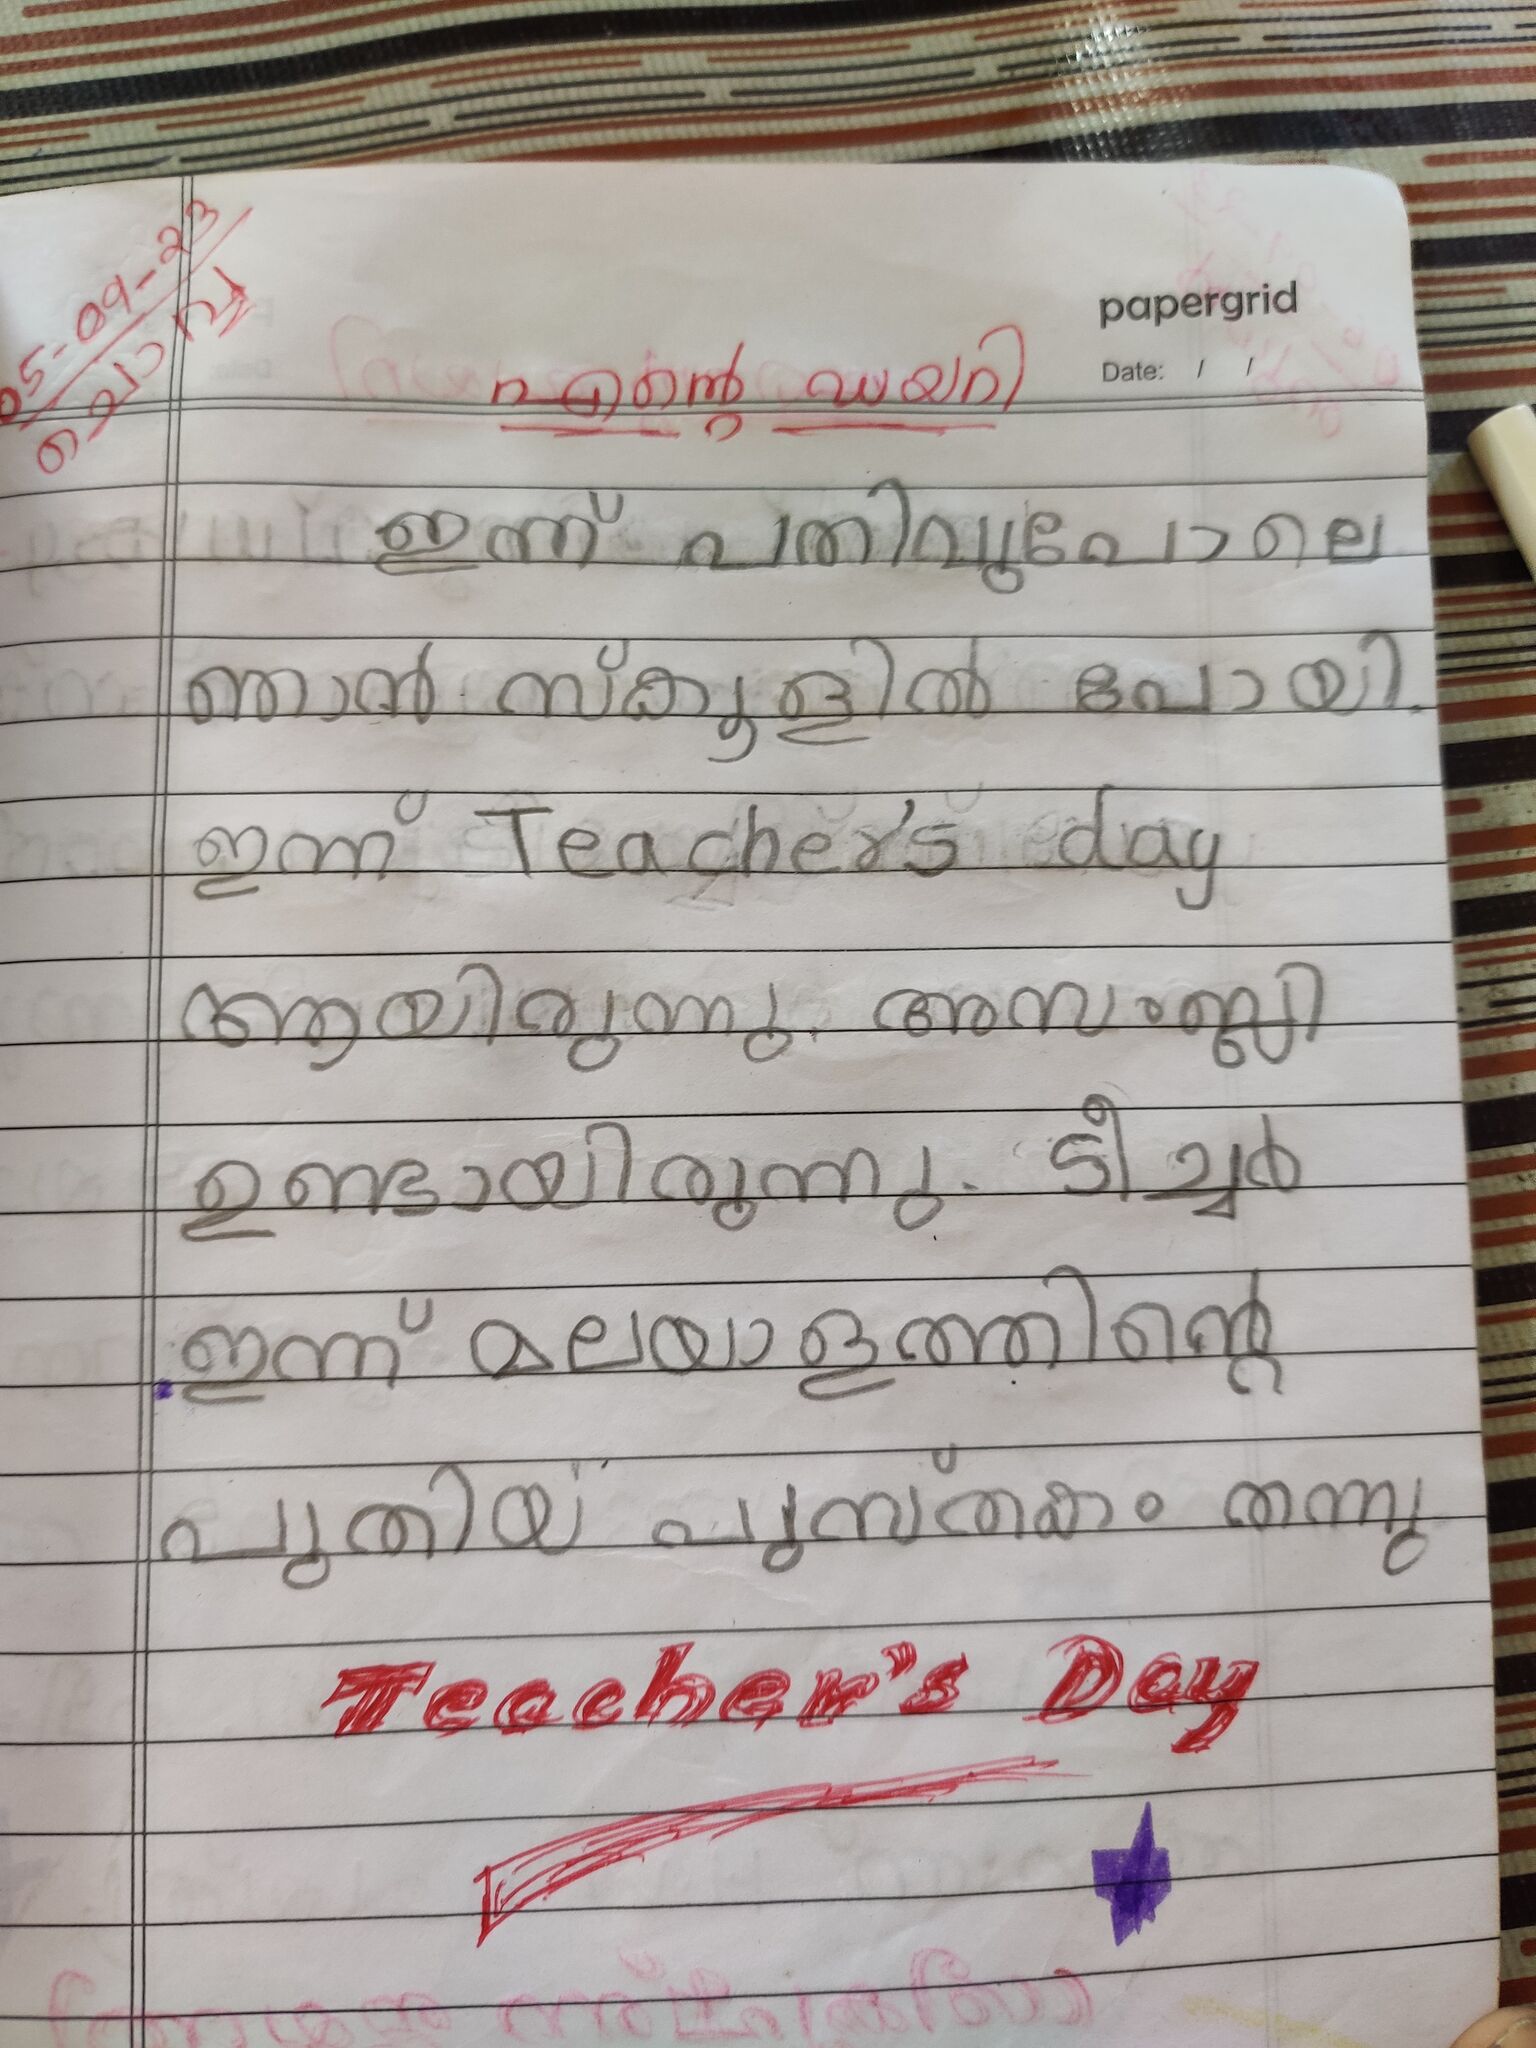 05-09-23
ചൊവ്വ
papergrid
Date: / /
എന്റെ ഡയറി
ഇന്ന് പതിവുപോലെ
ഞാൻ സ്കൂളിൽ പോയി.
ഇന്ന് Teacher's day
ആയിരുന്നു. അസംബ്ലി
ഉണ്ടായിരുന്നു. ടീച്ചർ
ഇന്ന് മലയാളത്തിന്റെ
പുതിയ പുസ്തകം തന്നു
Teacher's Day